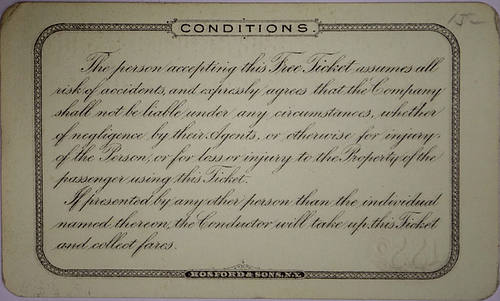 CONDITIONS.
15-
The person accepting this Free Ticket assumes all
risk of accidents, and expressly agrees that the Company
shall not be liable under any circumstances, whether
of negligence by their Agents, or otherwise for injury,
of the Person, or for loss or injury to the Property of the
passenger using this Ticket.
If presented by any other person than the individual
named thereon, the Conductor will take up this Ticket
and collect fares.
HOSFORD & SONS, N.Y.